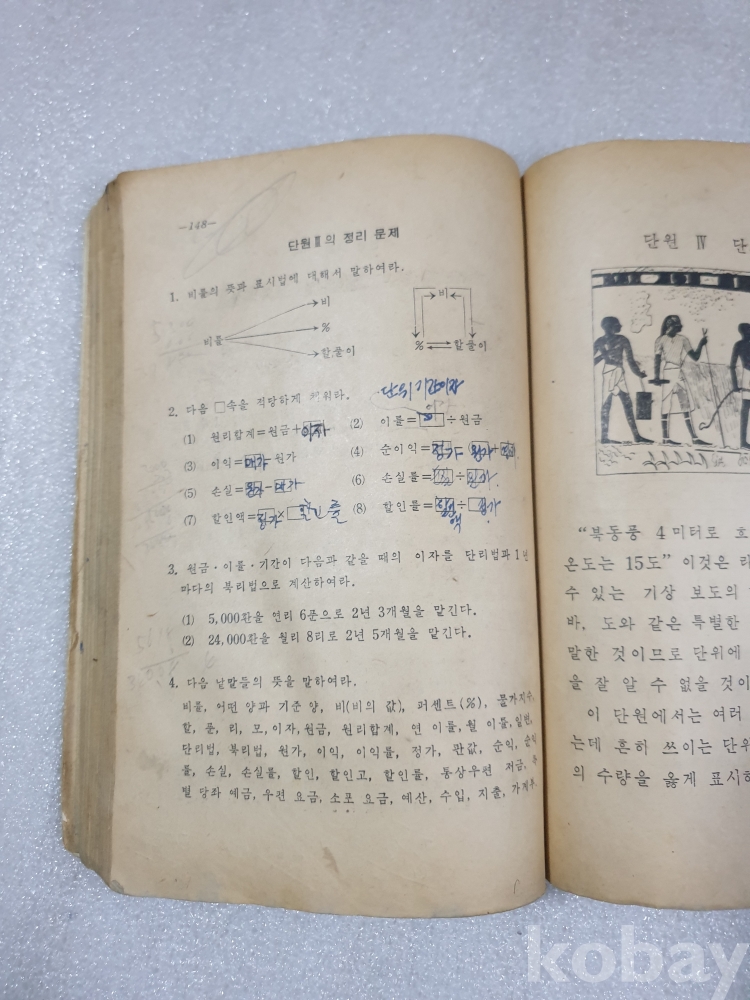 -148-
단원 Ⅲ의 정리 문제
1. 비률의 뜻과 표시법에 대해서 말하여라.
비률
비
%
할푼리
비
% 할푼리
단위기간이자
2. 다음 □속을 적당하게 채워라.
(1) 원리합계=원금+이자
(2) 이률= ÷원금
(3) 이익= 원가
(4) 순이익=정가
(5) 손실=
(6) 손실률= ÷원가
(7) 할인액=정가×할인률
(8) 할인률=할인액÷정가
3. 원금·이률·기간이 다음과 같을 때의 이자를 단리법과 1년
마다의 복리법으로 계산하여라.
(1) 5,000환을 연리 6푼으로 2년 3개월을 맡긴다.
(2) 24,000환을 월리 8리로 2년 5개월을 맡긴다.
4. 다음 낱말들의 뜻을 말하여라.
비률, 어떤 양과 기준 양, 비(비의 값), 퍼센트(%), 물가지수,
할, 푼, 리, 모, 이자, 원금, 원리합계, 연 이률, 월 이률, 일변,
단리법, 복리법, 원가, 이익, 이익률, 정가, 판값, 순익, 순익
률, 손실, 손실률, 할인, 할인고, 할인률, 통상우편 저금, 특
별 당좌 예금, 우편 요금, 소포 요금, 예산, 수입, 지출, 가계부.
단원 Ⅳ 단
“북동풍 4미터로 흐
온도는 15도” 이것은 라
수 있는 기상 보도의
바, 도와 같은 특별한
말한 것이므로 단위에
을 잘 알 수 없을 것이
이 단원에서는 여러
는데 흔히 쓰이는 단위
의 수량을 옳게 표시하
kobay